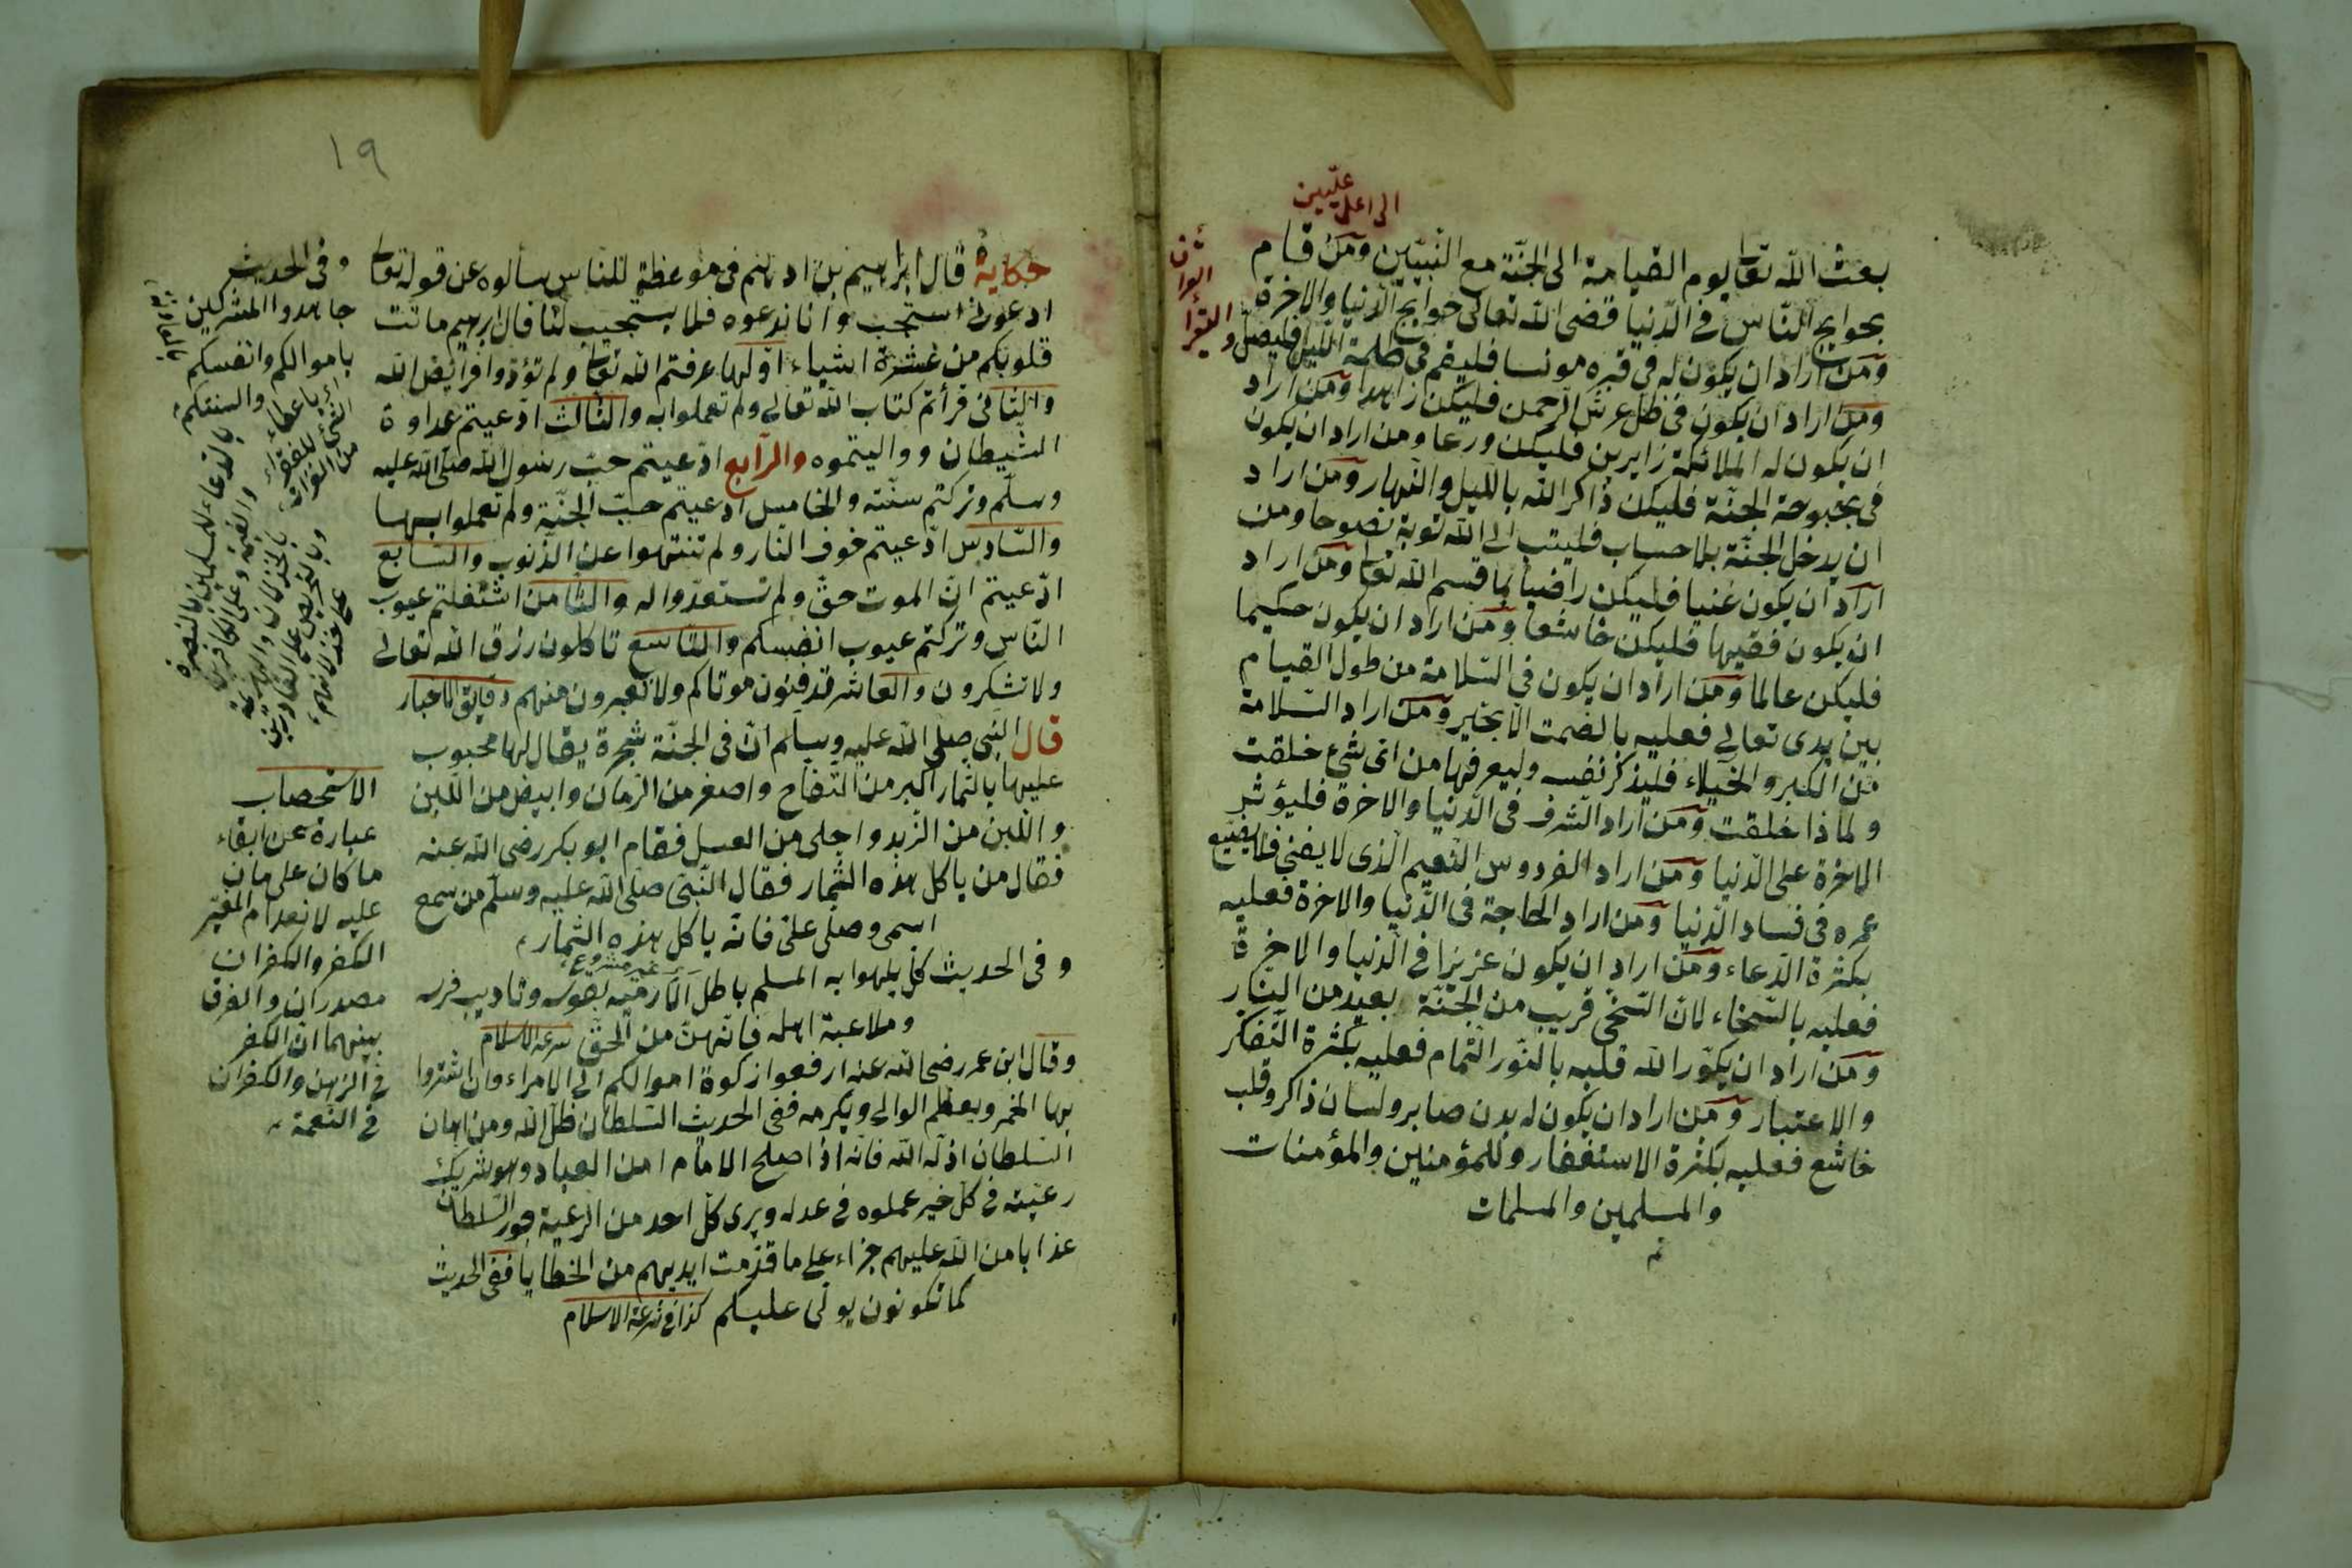 الى اعلى عليين
بعث الله تعالى يوم القيامة الى الجنّة مع النبيّين ومن قام
بحوايج النّاس في الدّنيا قضى الله تعالى حوايج الدّنيا والاخرة
ومن اراد ان يكون له في قبره مونسا فليقم في ظلمة اللّيل فليصلّ و
ليقرأ
ومن اراد ان يكون في ظل عرش الرّحمن فليكن زاهدا ومن اراد
ان يكون له الملائكة زايرين فليكن ورعا ومن اراد ان يكون
في بحبوحة الجنّة فليكن ذاكر الله بالليل والنّهار ومن اراد
ان يدخل الجنّة بلا حساب فليتب الى الله توبة نصوحا ومن
اراد ان يكون غنيا فليكن راضيا بما قسم الله تعالى ومن اراد
ان يكون فقيها فليكن خاشعا ومن اراد ان يكون حكيما
فليكن عالما ومن اراد ان يكون في السّلامة من طول القيام
بين يدى تعالى فعليه بالصّمت الّا بخير ومن اراد السّلامة
من الكبر والخيلاء فليذكر نفسه وليعرفها من اى شئ خلقت
ولماذا خلقت ومن اراد الشّرف في الدّنيا والاخرة فليؤثر
الاخرة على الدّنيا ومن اراد الفردوس النّعيم الّذى لا يفنى فلا يضيّع
عمره في فساد الدّنيا ومن اراد الحاجة فى الدّنيا والاخرة فعليه
بكثرة الدّعاء ومن اراد ان يكون عزيزا في الدّنيا والاخرة
فعليه بالسّخاء لانّ السّخى قريب من الجنّة بعيد من النّار
ومن اراد ان ينوّر الله قلبه بالنّور التّمام فعليه بكثرة التّفكر
والاعتبار ومن اراد ان يكون له بدن صابر ولسان ذاكر وقلب
خاشع فعليه بكثرة الاستغفار وللمؤمنين والمؤمنات
والمسلمين والمسلمات
١٩
حكاية قال ابراهيم بن ادهم في موعظة للنّاس سألوه عن قوله تعالى
ادعونى استجب وانا ندعوه فلا يستجيب لنا قال ابرهيم ماتت
قلوبكم من عشرة اشياء اوّلها عرفتم الله تعالى ولم تؤدّوا فرائض الله
والثّانى قرأتم كتاب الله تعالى ولم تعملوا به والثّالث ادّعيتم عداوة
الشّيطان وواليتموه والرّابع ادّعيتم حبّ رسول الله صلّى الله عليه
وسلّم وتركتم سنّته والخامس ادّعيتم حبّ الجنّة ولم تعملوا بها
والسّادس ادّعيتم خوف النار ولم تنتهوا عن الذّنوب والسّابع
ادّعيتم انّ الموت حقّ ولم تستعدّوا له والثّامن اشتغلتم عيوب
النّاس وتركتم عيوب انفسكم والتّاسع تاكلون رزق الله تعالى
ولا تشكرون والعاشر تدفنون موتاكم ولا تعبرون منهم دقايق الاخبار
قال النّبى صلّى الله عليه وسلّم انّ فى الجنّة شجرة يقال لها محبوب
عليها بالثمار اكبر من التّفاح واصغر من الرّمان وابيض من اللّبن
واللّين من الزّبد واحلى من العسل فقام ابو بكر رضى الله عنه
فقال من ياكل هذه الثّمار فقال النّبى صلّى الله عليه وسلّم من سمع
اسمى وصلّى علىّ فانّه ياكل هذه الثّمار
وفى الحديث كلّ يلهوا به المسلم باطل الّا رميه بقوسه وتاديب فرسه
غير مشروع
وملاعبة اهله فانّهنّ من الحقّ شرعة الاسلام
وقال ابن عمر رضى الله عنه ارفعوا زكوة اموالكم الى الامراء وان اشتروا
بها الخمر ويعظّم الوالى ويكرمه ففى الحديث السّلطان ظلّ الله ومن اهان
السّلطان اذلّه الله فانّه اذا اصلح الامام امن العباد وهو شريك
رعيته في كلّ خير عملوه في عدله ويرى كلّ احد من الرّعية جور السّلطان
عذابا من الله عليهم جزاء على ما قدّمت ايديهم من الخطايا ففى الحديث
كما تكونون يولّى عليكم كذا في شرعة الاسلام
وفى الحديث
جاهدوا المشركين
باموالكم وانفسكم
والسنتكم
اى باعطاء
بالدّعاء للمسلمين بالنصرة
الاستصحاب
عبارة عن ابقاء
ما كان على ما كان
عليه لانعدام المغيّر
الكفر والكفران
مصدران والفرق
بينهما انّ الكفر
في الدّين والكفران
في النّعمة